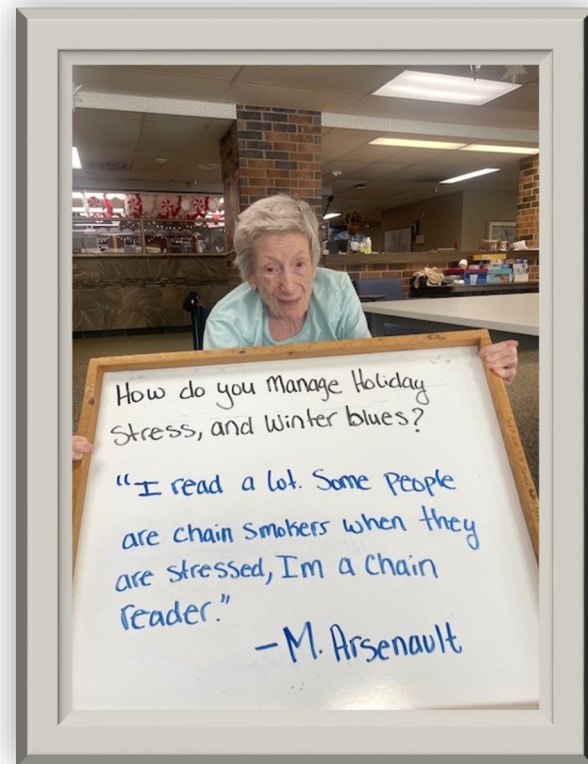 How do you Manage Holiday
Stress, and Winter blues?
"I read a lot. Some People
are chain smokers when they
are stressed, Im a Chain
reader."
-M. Arsenault